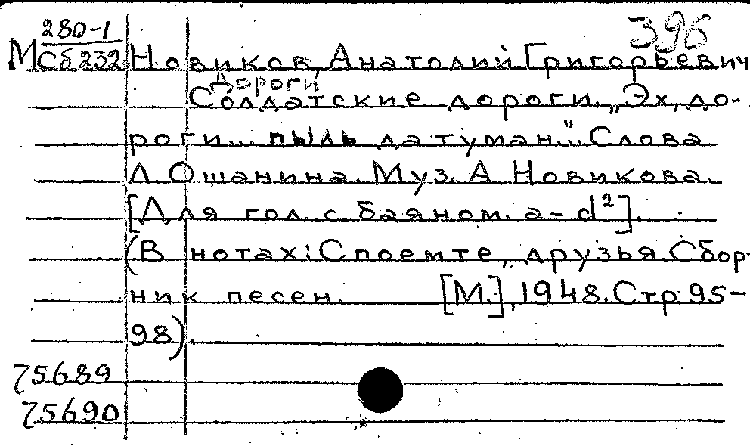 280-1
396
М Сб232 Новиков, Анатолий Григорьевич
Дороги
Солдатские дороги. „Эх, до-
роги... пыль да туман..." Слова
Л Ошанина. Муз. А Новикова.
[Для гол. с баяном. a-d²].
(В нотах: Споемте, друзья. Сбор-
ник песен. [М.], 1948. Стр. 95-
98).
75689
75690